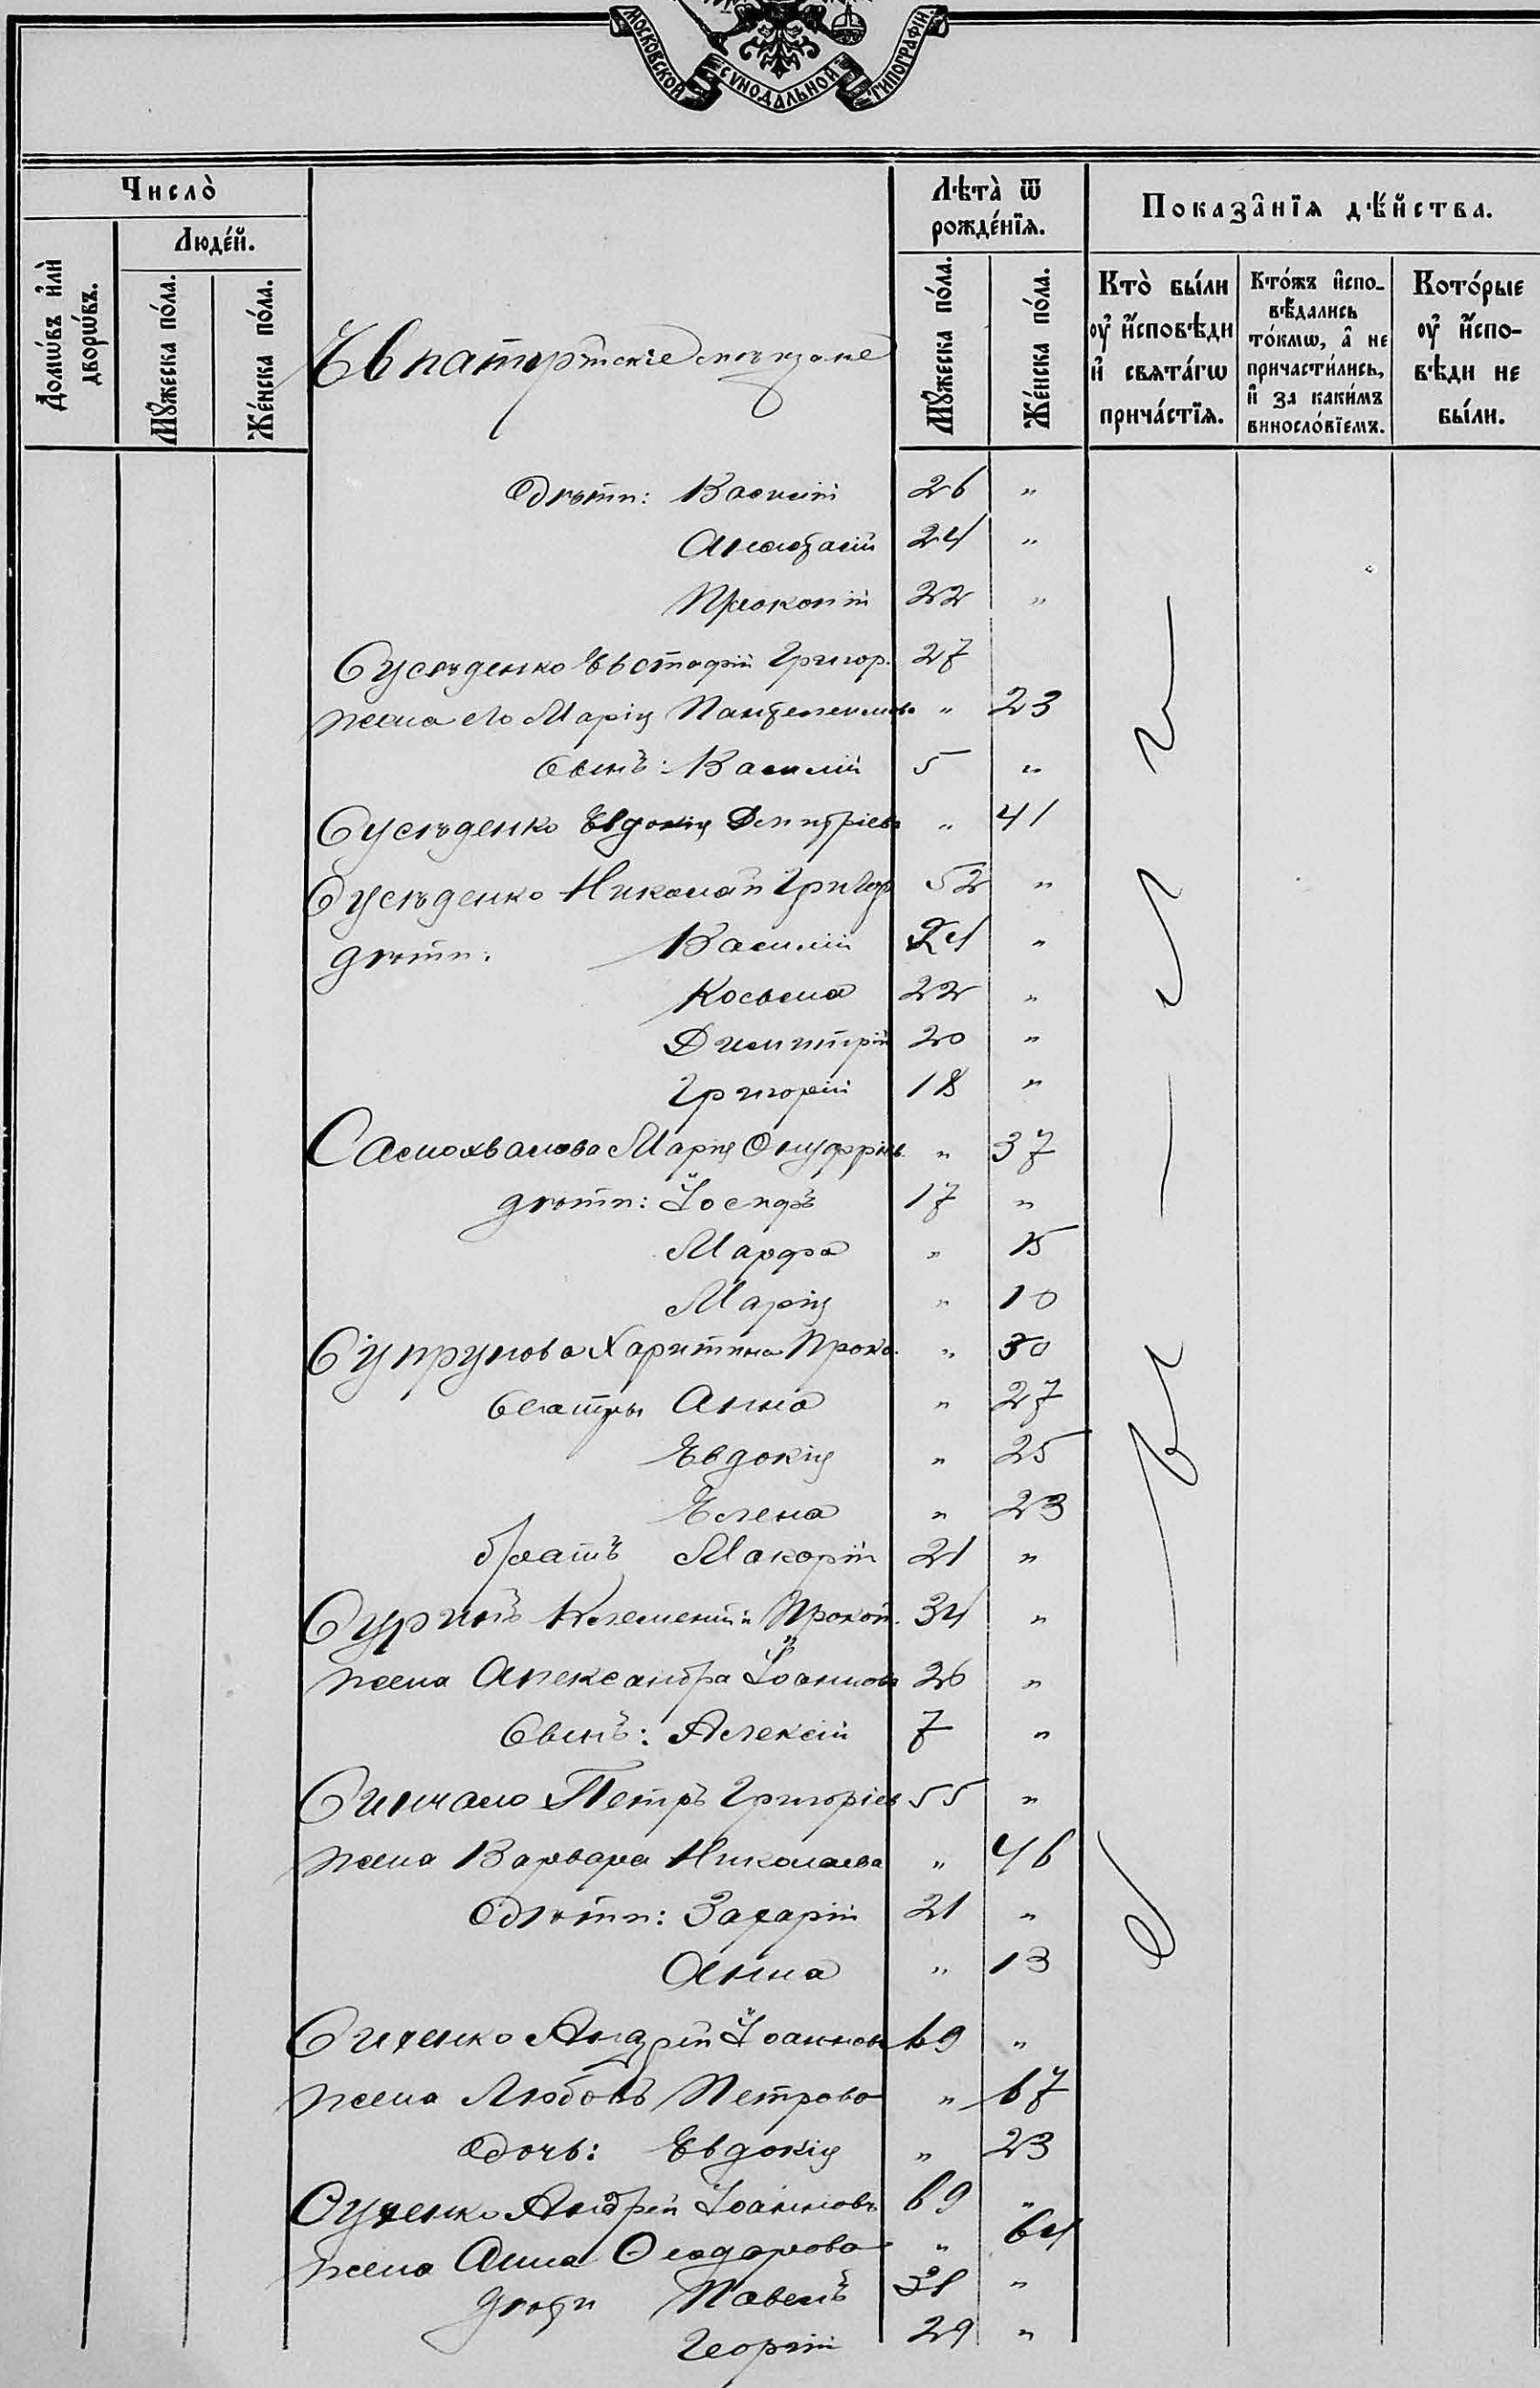 МОСКОВСКОЙ СѴНОДАЛЬНОЙ ТИПОГРАФІИ.
Число̀
Люде́й.
Домѡ́въ и҆лѝ дворѡ́въ.
Мꙋ́жеска по́ла.
Же́нска по́ла.
Лѣта̀ ѿ рожде́нїѧ.
Мꙋ́жеска по́ла.
Же́нска по́ла.
Показа̑нїѧ дѣ́йства.
Кто̀ бы́ли ᲂу҆ и҆́сповѣди и҆ свѧта́гѡ прича́стїѧ.
Кто́жъ и҆спо-вѣ́дались то́кмѡ, а҆ не причасти́лись, и҆ за каки́мъ виносло́вїемъ.
Кото́рые ᲂу҆ и҆́спо-вѣди не бы́ли.
Евпаторійскіе мѣщане
дѣти: Василій 26 "
Анастасій 24 "
Прокопій 22 "
Сусѣденко Евстафій Григор. 27
жена его Марія Пантелеимов. " 23
сынъ: Василій 5 "
Сусѣденко Евдокія Димитріева " 41
Сусѣденко Николай Григор 52 "
дѣти: Василій 24 "
Косьма 22 "
Димитрій 20 "
Григорій 18 "
Самохвалова Марія Онуфріев. " 37
дѣти: Іосифъ 17 "
Марфа " 15
Марія " 10
Супрунова Харитина Проко. " 30
сестры Анна " 27
Евдокія " 25
Елена " 23
братъ Макарій 21 "
Сургинъ Климентій Прокоп. 34 "
жена Александра Іоаннова 26 "
сынъ: Алексій 7 "
Синчало Петръ Григоріев 55 "
жена Варвара Николаева " 46
дѣти: Захарій 21 "
Анна " 13
Сиченко Андрей Іоаннов 69 "
жена Любовь Петрова " 67
дочь: Евдокія " 23
Сученко Андрей Іоанновъ 69 "
жена Анна Ѳеодорова " 64
дѣти Павелъ 31 "
Георгій 29 "